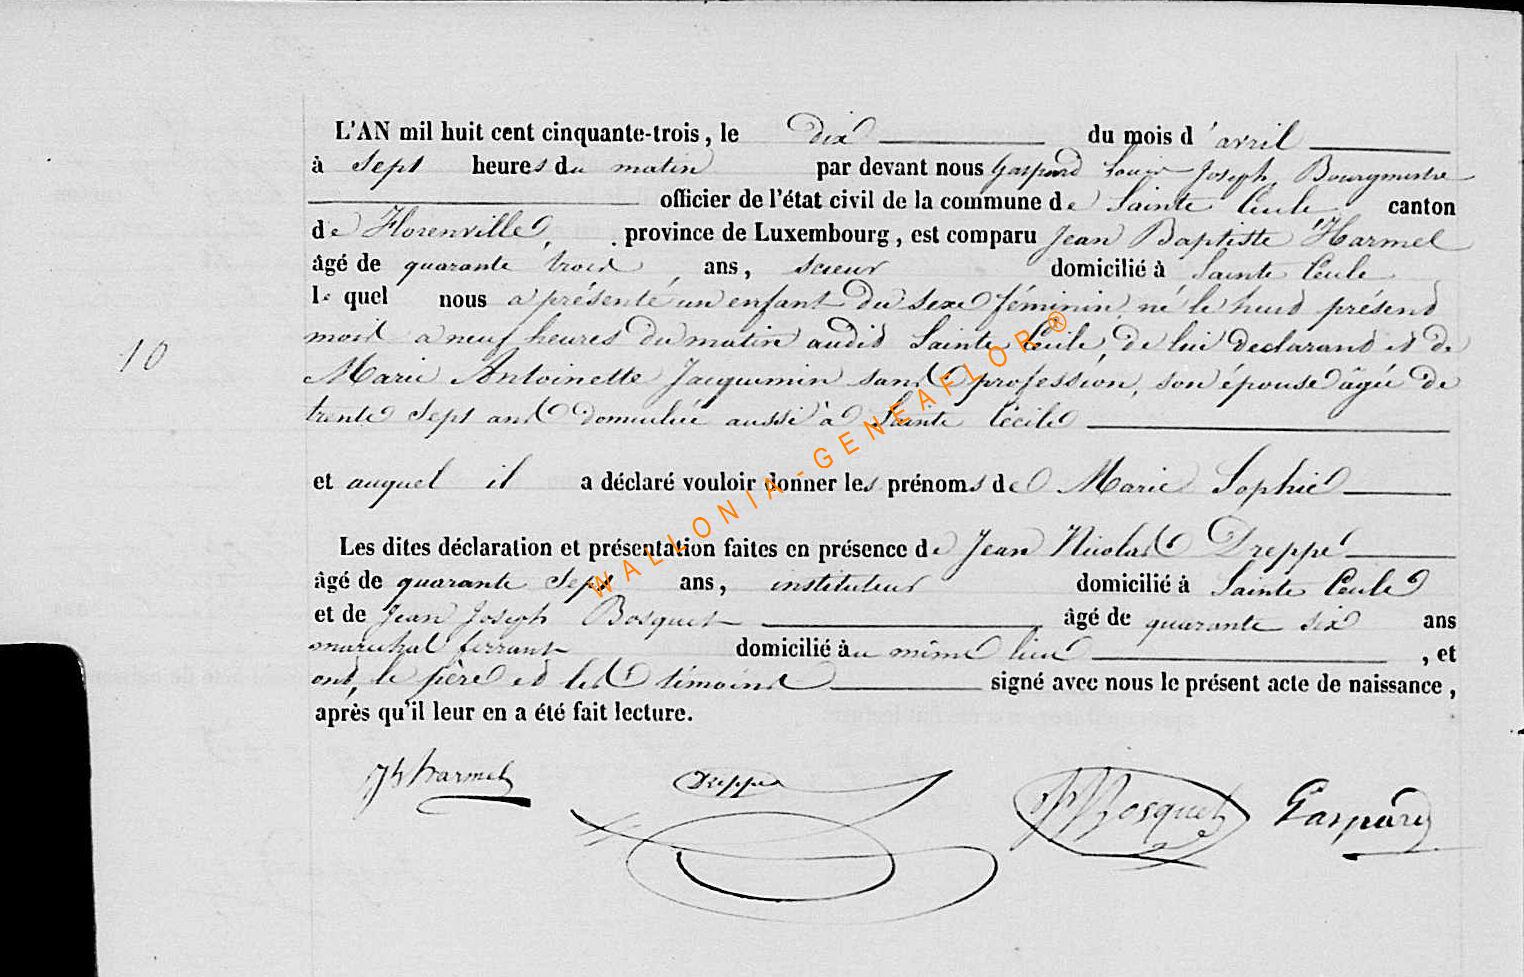 L'AN mil huit cent cinquante-trois, le dix du mois d'avril
à sept heures du matin par devant nous Gaspard Louis Joseph, Bourgmestre
officier de l'état civil de la commune de Sainte Cecile canton
de Florenville, province de Luxembourg, est comparu Jean Baptiste Harmel
âgé de quarante trois ans, scieur domicilié à Sainte Cecile
lequel nous a présenté un enfant du sexe féminin, né le huit présent
mois a neuf heures du matin audit Sainte Cécile, de lui declarant et de
Marie Antoinette Jacquemin sans profession, son épouse âgée de
trente sept ans domiciliée aussi à Sainte Cécile
10
et auquel il a déclaré vouloir donner les prénoms de Marie Sophie
Les dites déclaration et présentation faites en présence de Jean Nicolas Dreppe
âgé de quarante sept ans, instituteur domicilié à Sainte Cecile
et de Jean Joseph Bosquet âgé de quarante six ans
marechal ferrant domicilié au même lieu, et
ont, le père et les témoins signé avec nous le présent acte de naissance,
après qu'il leur en a été fait lecture.
Jb harmel Dreppe JJ Bosquet Gaspard
WALLONIA-GENEAFLOR®